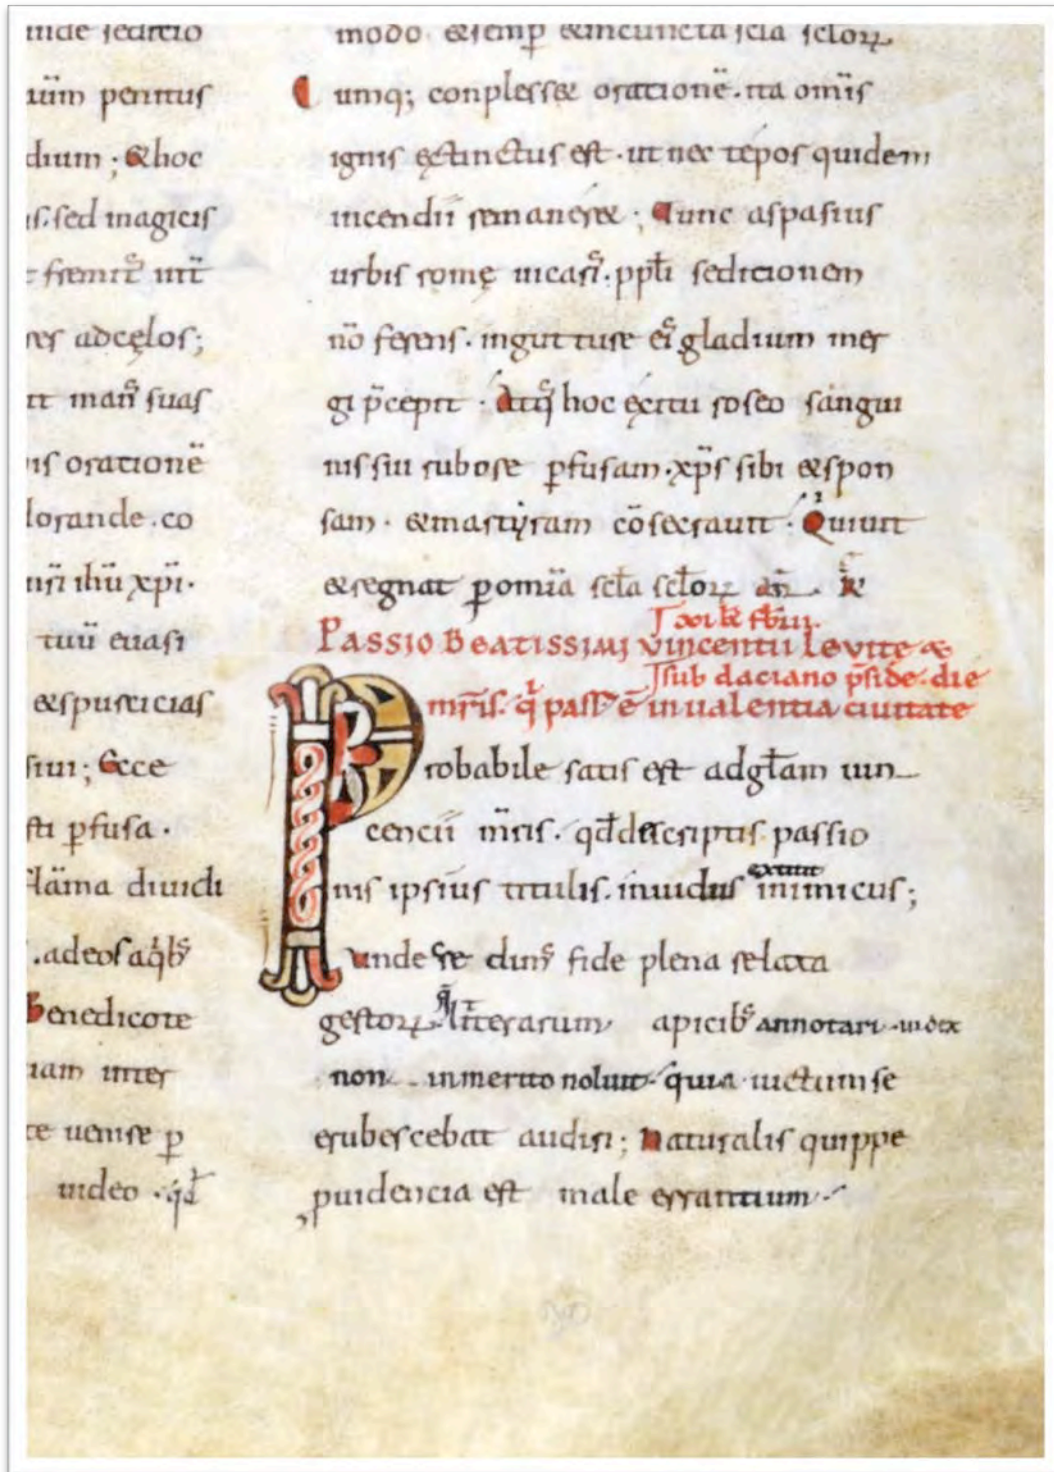 inde seditio
penitus
dium ; &hoc
is. sed magicis
fremit᷒
res adcęlos;
it man᷒ suas
is orationē
lorande . co
ihū xp̄i.
tuū euasi
&spuricias
siui; Ecce
sti ꝑfusa .
flāma diuidi
.adeosaqͥb᷒
Benedicote
iam inter
te uenire ꝑ
uideo . qd̄
modo &semꝑ &incuncta scła scłoꝝ
Cumq; conpless& orationē. ita om̄is
ignis ęxtinctus est . ut nec tépos quidem
incendii reman&r& ; Tunc aspasius
urbis romę uicari᷒. ppłi seditionem
nō ferens . ingutture ei᷒ gladium mer
gi p̄cepit . Atq᷒ hoc éxitu roseo sángui
nis sui rubore ꝑfusam . xp̄s sibi &spon
sam . &martẏram cōsecrauit . Qui uiuit
&regnat ꝑ om̄ia scła scłoꝝ am̄.
Passio Beatissimi vincentii levite &
mr̄is. qͥ pass᷒ ē in ualentia ciuitate
sub daciano p̄side . die
xi kł fb̄rii.
Probabile satis est adgłam uin
cencii mr̄is . qd̄ descriptis passio
nis ipsius titulis . inuidus exitit inimicus;
unde re din᷒ fide plena relata
gestoꝝ q̄ litterarum apicib᷒ annotari . iudex
non inmerito noluit . quia uictum se
erubescebat audiri ; Naturalis quippe
ꝓuidencia est male errantium .